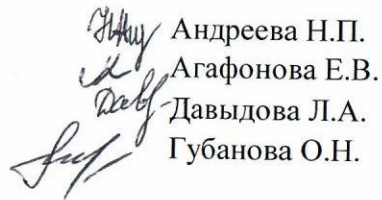 Андреева Н.П.
Агафонова Е.В.
Давыдова Л.А.
Губанова О.Н.